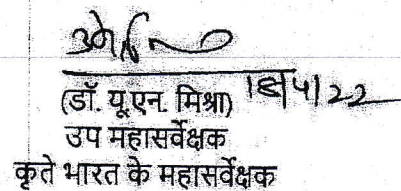 (डॉ. यू.एन. मिश्रा)
उप महासर्वेक्षक
कृते भारत के महासर्वेक्षक